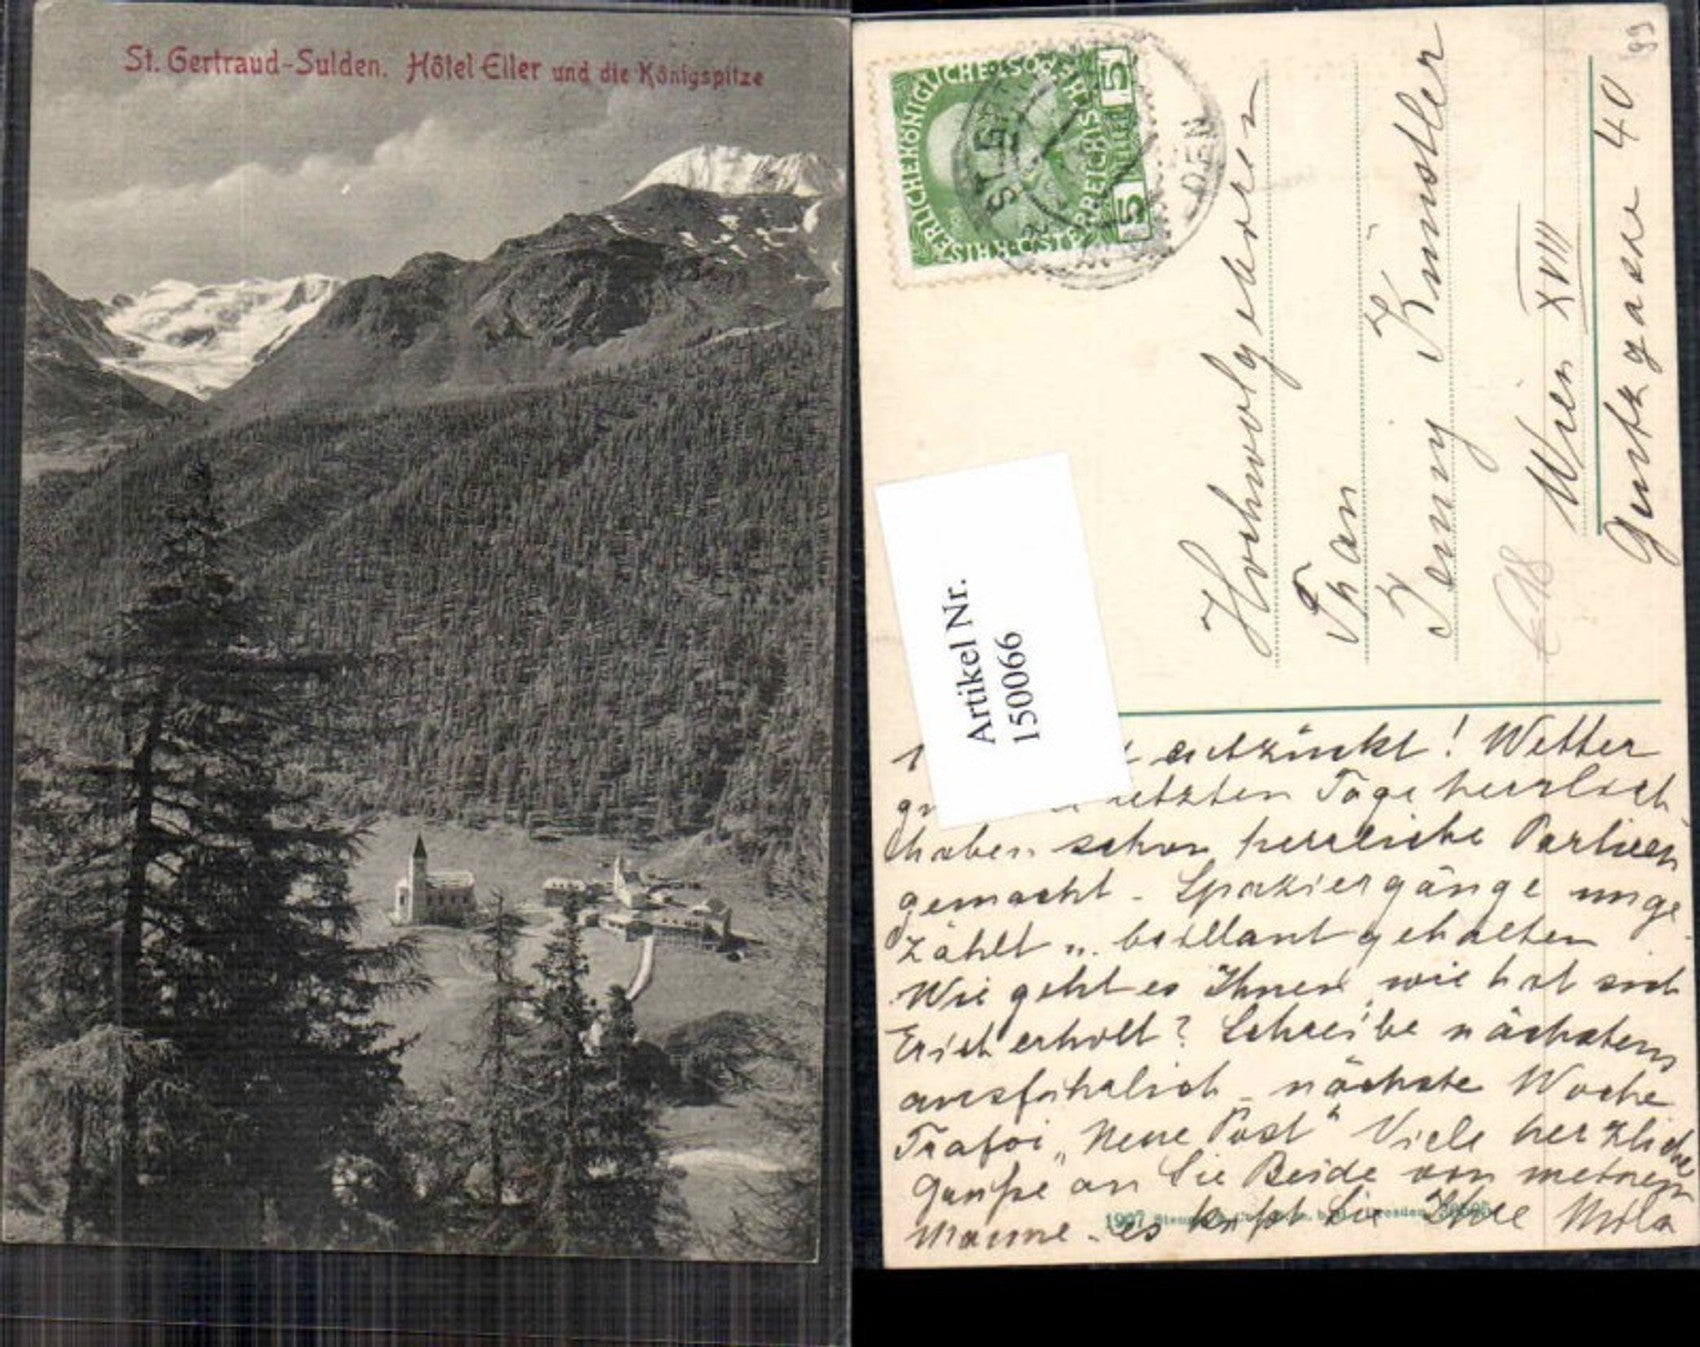 St. Gertraud-Sulden. Hôtel Eller und die Königspitze
KAISERLICHE KÖNIGLICHE ÖSTERREICHISCHE
5 5
ST GERT DEN
99
Hochwolgeboren
Frau
Jenny Künstler
Wien XVIII
Gentzgasse 40
€ 18
Artikel Nr.
150066
entzückt! Wetter
letzten Tage herrlich
haben schon herrliche Partieen
gemacht - Spaziergänge unge
zählt u. brillant gehalten
Wie geht es Ihnen, wie hat sich
Erich erholt? Schreibe nächstens
ausführlich - nächste Woche
Trafoi „Neue Post" Viele herzliche
Grüße an Sie Beide von meinem
Manne - es küßt Sie Ihre Mila
1907 Dresden